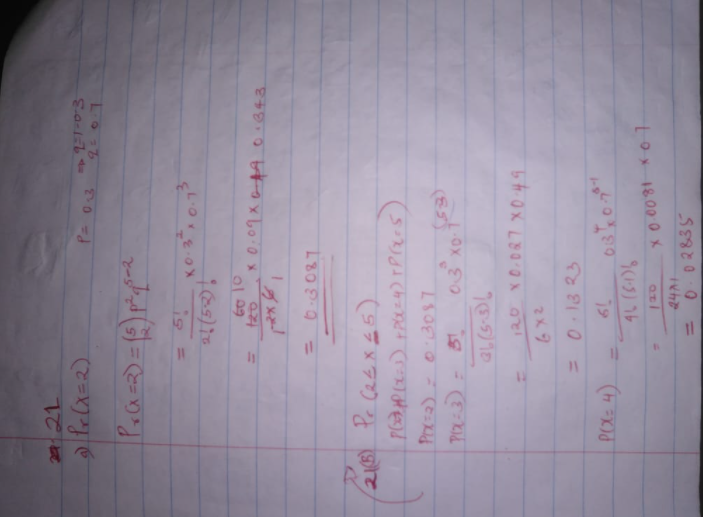 21
a) Pr(x=2)
P = 0.3 ⇒ q = 1-0.3
q = 0.7
Pr(x=2) = (5 2) p² q⁵⁻²
= 5! / 2!(5-2)! × 0.3² × 0.7³
= 120 / 2×6 × 0.09 × 0.343
= 0.3087
21(B) Pr(2 ≤ x ≤ 5)
P(x=2)+P(x=3)+P(x=4)+P(x=5)
P(x=2) = 0.3087
P(x=3) = 5! / 3!(5-3)! 0.3³ × 0.7⁽⁵⁻³⁾
= 120 / 6×2 × 0.027 × 0.49
= 0.1323
P(x=4) = 5! / 4!(5-1)! 0.3⁴ × 0.7⁵⁻¹
= 120 / 24×1 × 0.0081 × 0.7
= 0.02835